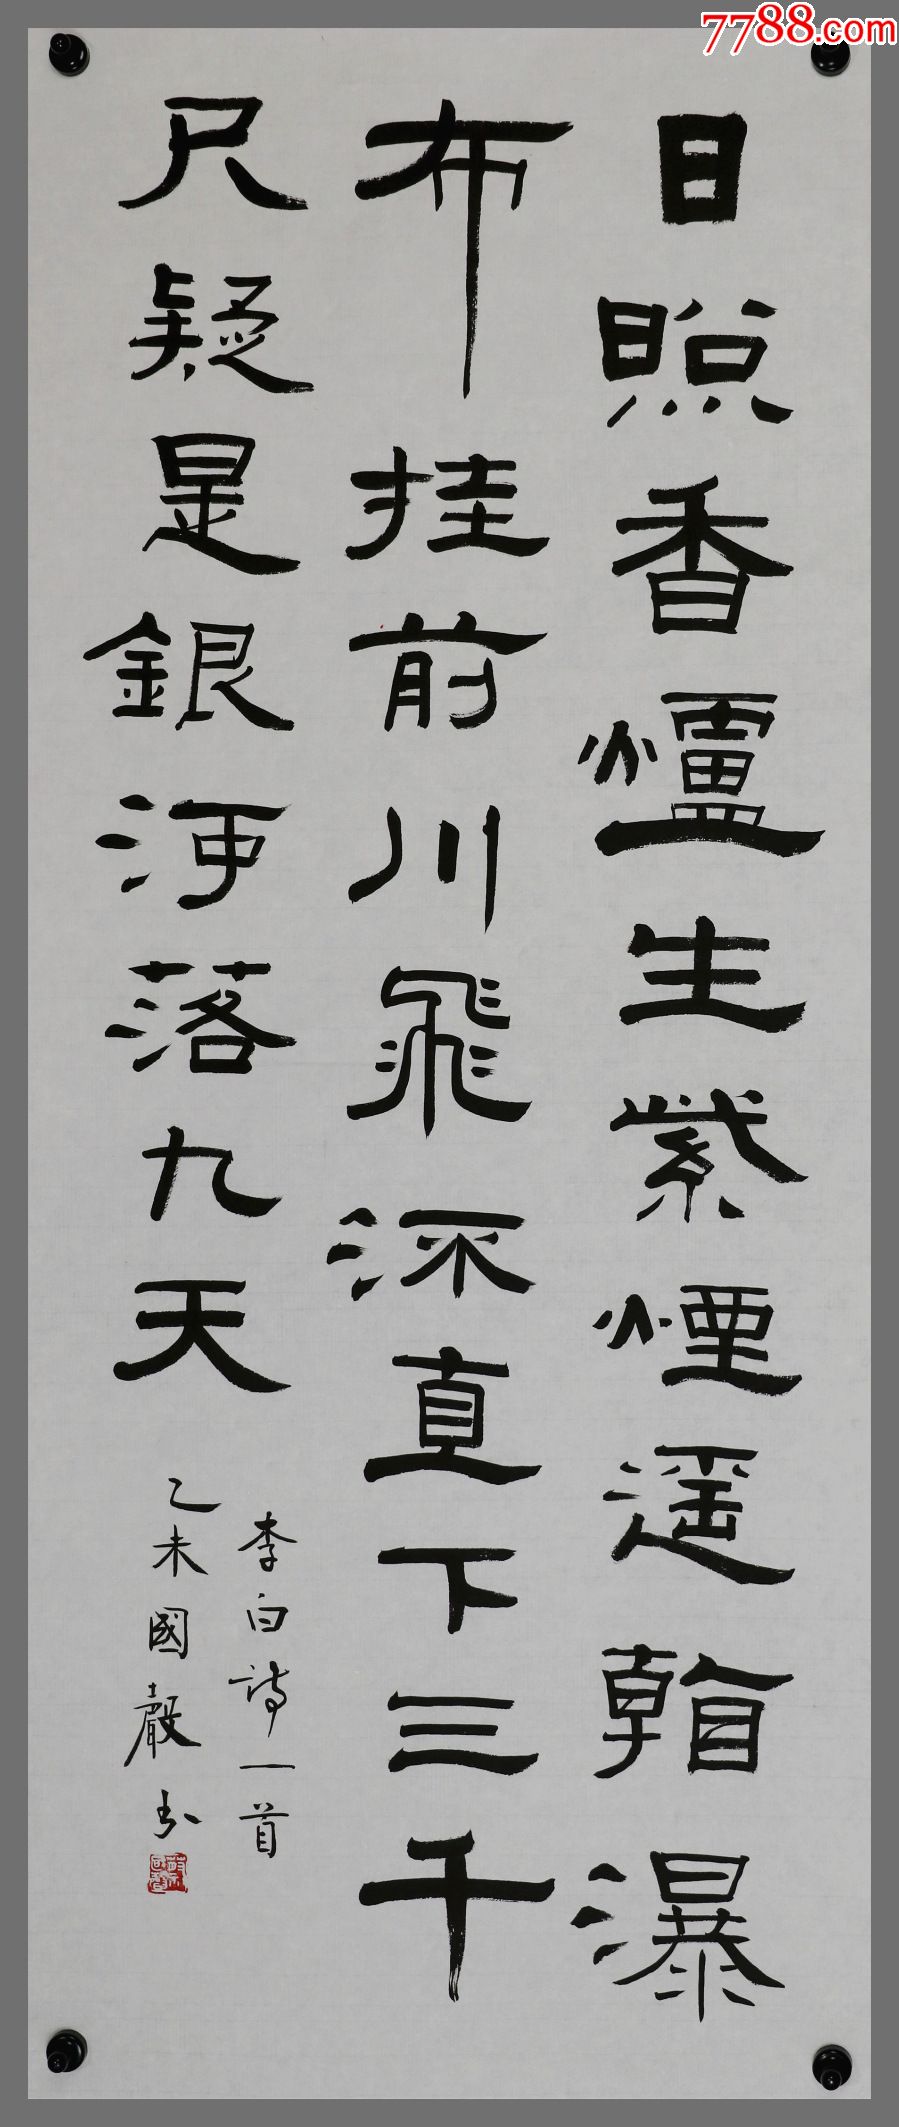 7788.com
日照香爐生紫煙遥看瀑
布挂前川飛流直下三千
尺疑是銀河落九天
李白詩一首
乙未國嚴书